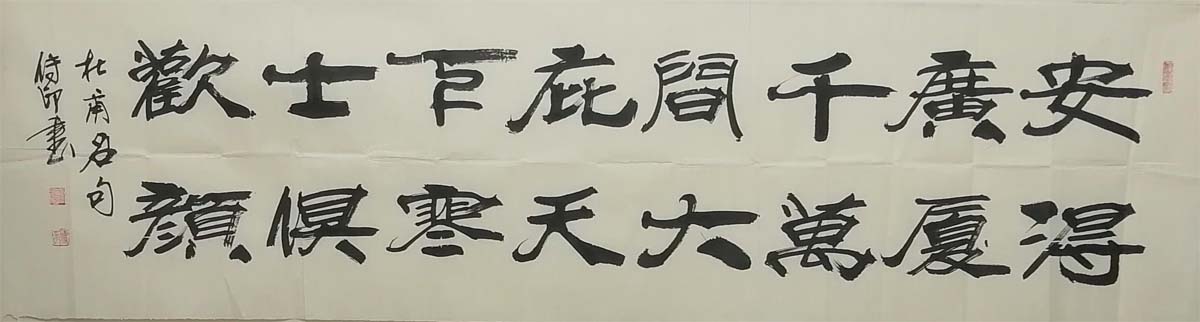 安得
廣厦
千萬
間大
庇天
下寒
士俱
歡顔
杜甫名句
書